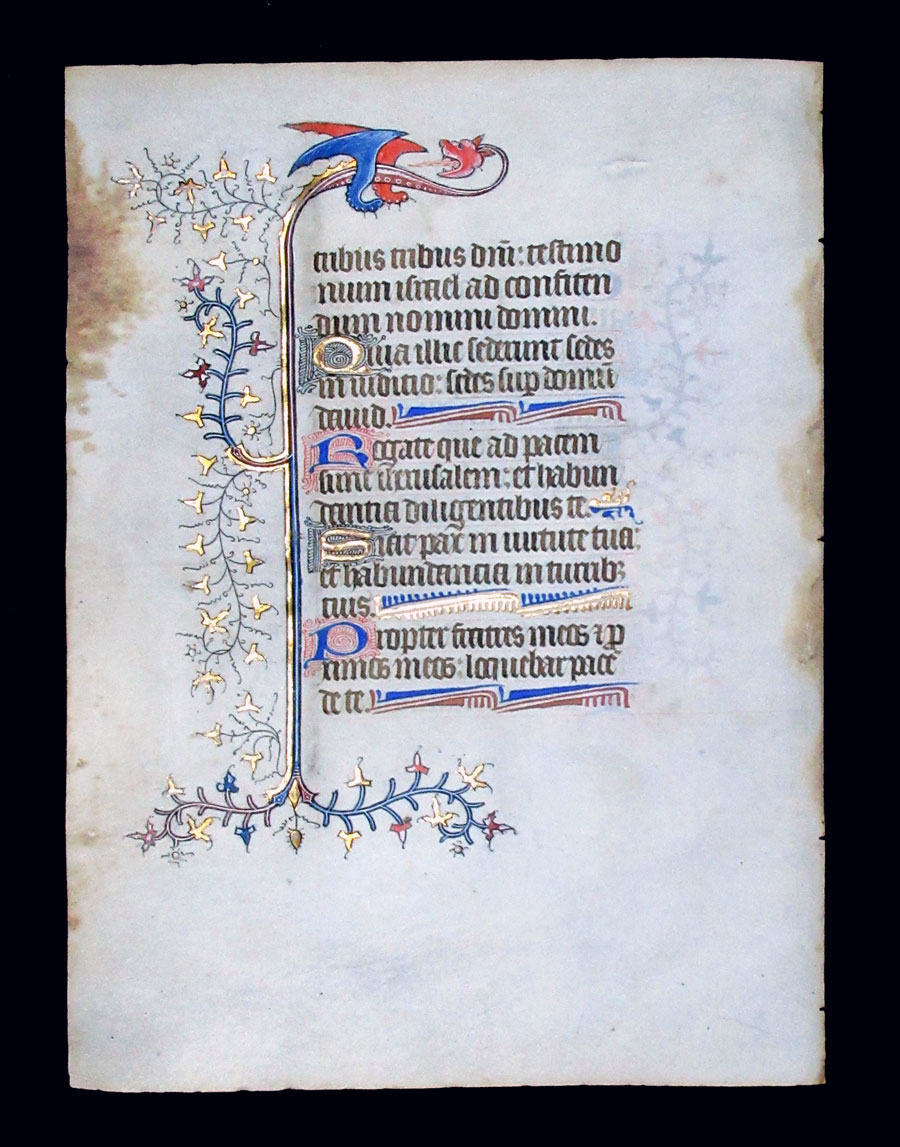 tribus tribus dnī: testimo
nium israel ad confiten
dum nomini domini.
Quia illic sederunt sedes
in iuditio: sedes sup domū
dauid.
Rogate que ad pacem
sunt iherusalem: et habun
dantia diligentibus te.
Fiat pax in uirtute tua:
et habundancia in turribȝ
tuis.
Propter fratres meos ⁊ p
ximos meos: loquebar pacē
de te.